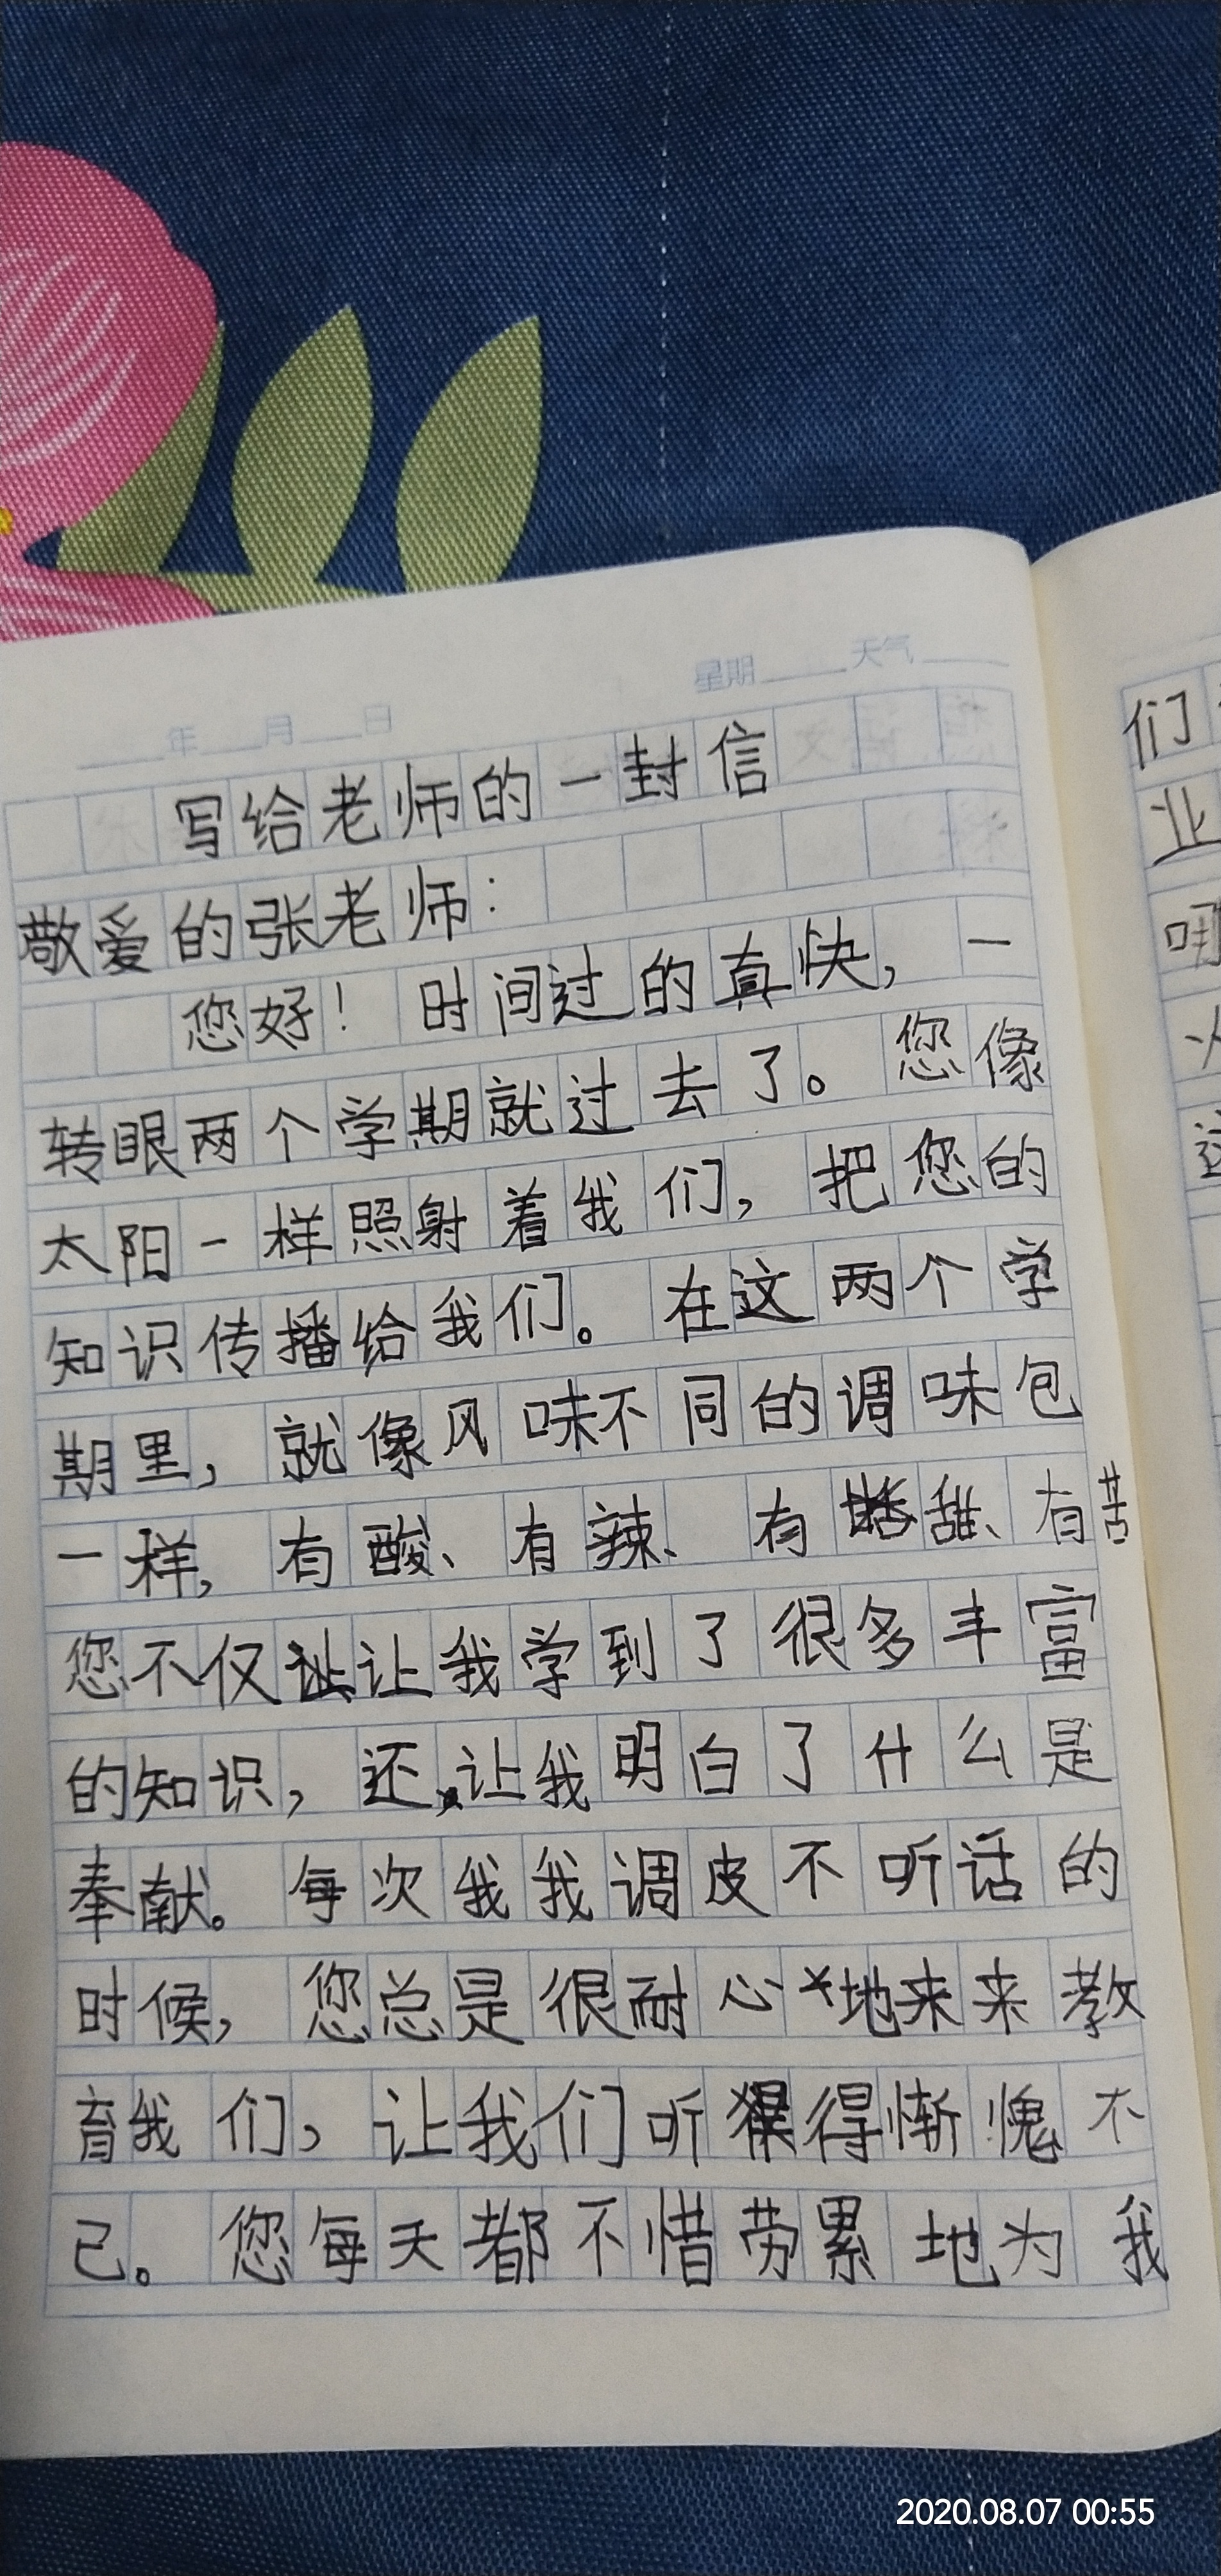 星期____天气____
____年____月____日
写给老师的一封信
敬爱的张老师：
您好！时间过的真快，一
转眼两个学期就过去了。您像
太阳一样照射着我们，把您的
知识传播给我们。在这两个学
期里，就像风味不同的调味包
一样，有酸、有辣、有甜、有苦
您不仅让我学到了很多丰富
的知识，还让我明白了什么是
奉献。每次我我调皮不听话的
时候，您总是很耐心地来来教
育我们，让我们听得惭愧不
己。您每天都不惜劳累地为我
们
业
2020.08.07 00:55